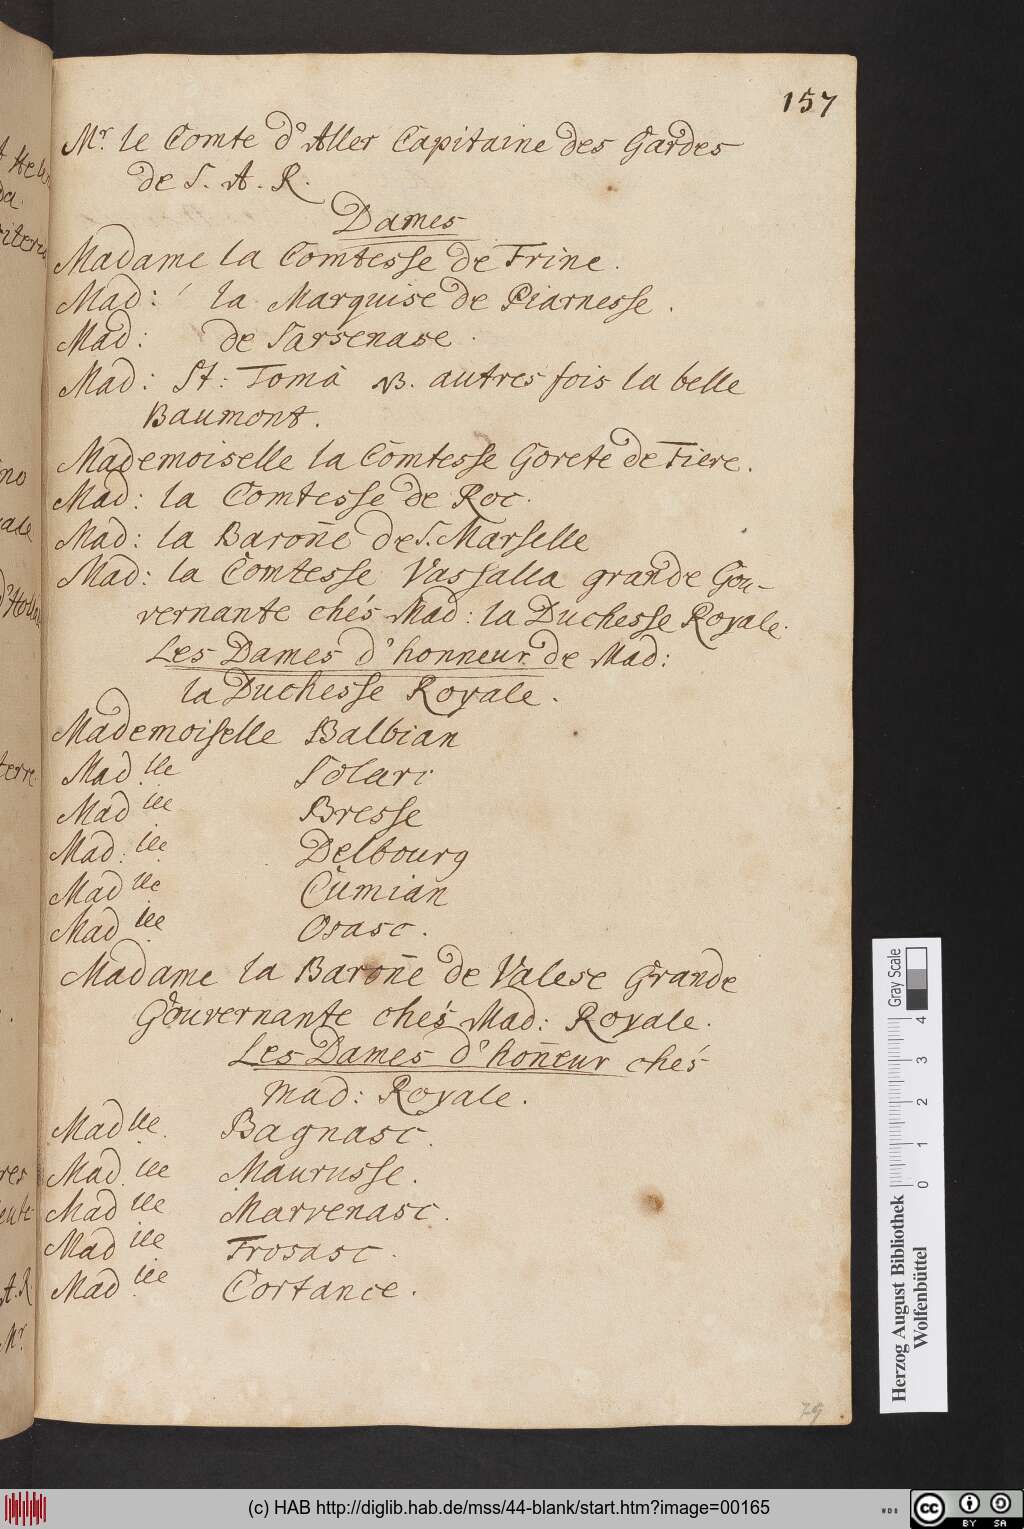 157
Mr. le Comte d'Aller Capitaine des Gardes
de S. A. R.
Dames
Madame la Comtesse de Frine.
Mad: la Marquise de Piarnesse.
Mad: de Sarsenase.
Mad: St: Tomà NB. autres fois la belle
Baumont.
Mademoiselle la Comtesse Gorete de Fiere.
Mad: la Comtesse de Roc.
Mad: la Baroñe de S. Marselle
Mad: la Comtesse Vassalla grande Gou-
vernante chés Mad: la Duchesse Royale.
Les Dames d'honneur de Mad:
la Duchesse Royale.
Mademoiselle Balbian
Mad lle Solari
Mad lle Bresse
Mad: lle Delbourg
Mad lle Cumian
Mad lle Osasc.
Madame la Baroñe de Valese Grande
Gouvernante chés Mad: Royale.
Les Dames d'hoñeur chés
Mad: Royale.
Mad lle Bagnasc.
Mad lle Maurusse.
Mad lle Marvenasc.
Mad lle Frosasc.
Mad lle Cortance.
79
Gray Scale
0 1 2 3 4
Herzog August Bibliothek
Wolfenbüttel
(c) HAB http://diglib.hab.de/mss/44-blank/start.htm?image=00165
WDB
cc BY SA